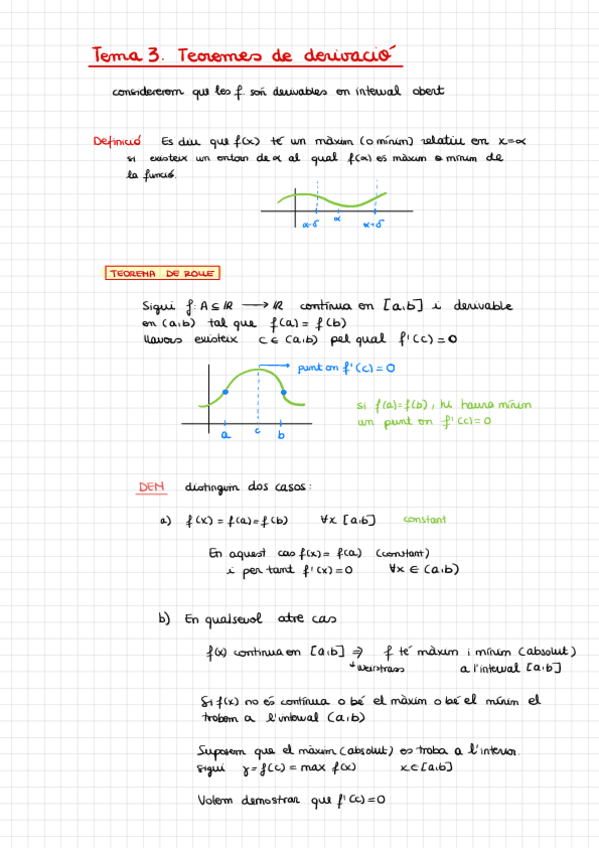 Tema 3. Teoremes de derivació
considererem que les f. són derivables en interval obert
Definició Es diu que f(x) té un màxim (o mínim) relatiu en x=α
si existeix un entorn de α al qual f(α) es màxim o mínim de
la funció.
α-δ α α+δ
TEOREMA DE ROLLE
Sigui f: A ⊆ ℝ → ℝ contínua en [a,b] i derivable
en (a,b) tal que f(a) = f(b)
llavors existeix c ∈ (a,b) pel qual f'(c) = 0
punt on f'(c) = 0
si f(a)=f(b), hi haura mínim
un punt on f'(c)=0
a c b
DEM distingim dos casos:
a) f(x) = f(a) = f(b) ∀x [a,b] constant
En aquest cas f(x) = f(a) (constant)
i per tant f'(x) = 0 ∀x ∈ (a,b)
b) En qualsevol atre cas
f(x) continua en [a,b] ⇒ f té màxim i mínim (absolut)
↓ Weirstrass a l'interval [a,b]
Si f(x) no és contínua o bé el màxim o bé el mínim el
trobem a l'interval (a,b)
Suposem que el màxim (absolut) es troba a l'interior.
sigui y = f(c) = max f(x) x∈[a,b]
Volem demostrar que f'(c)=0